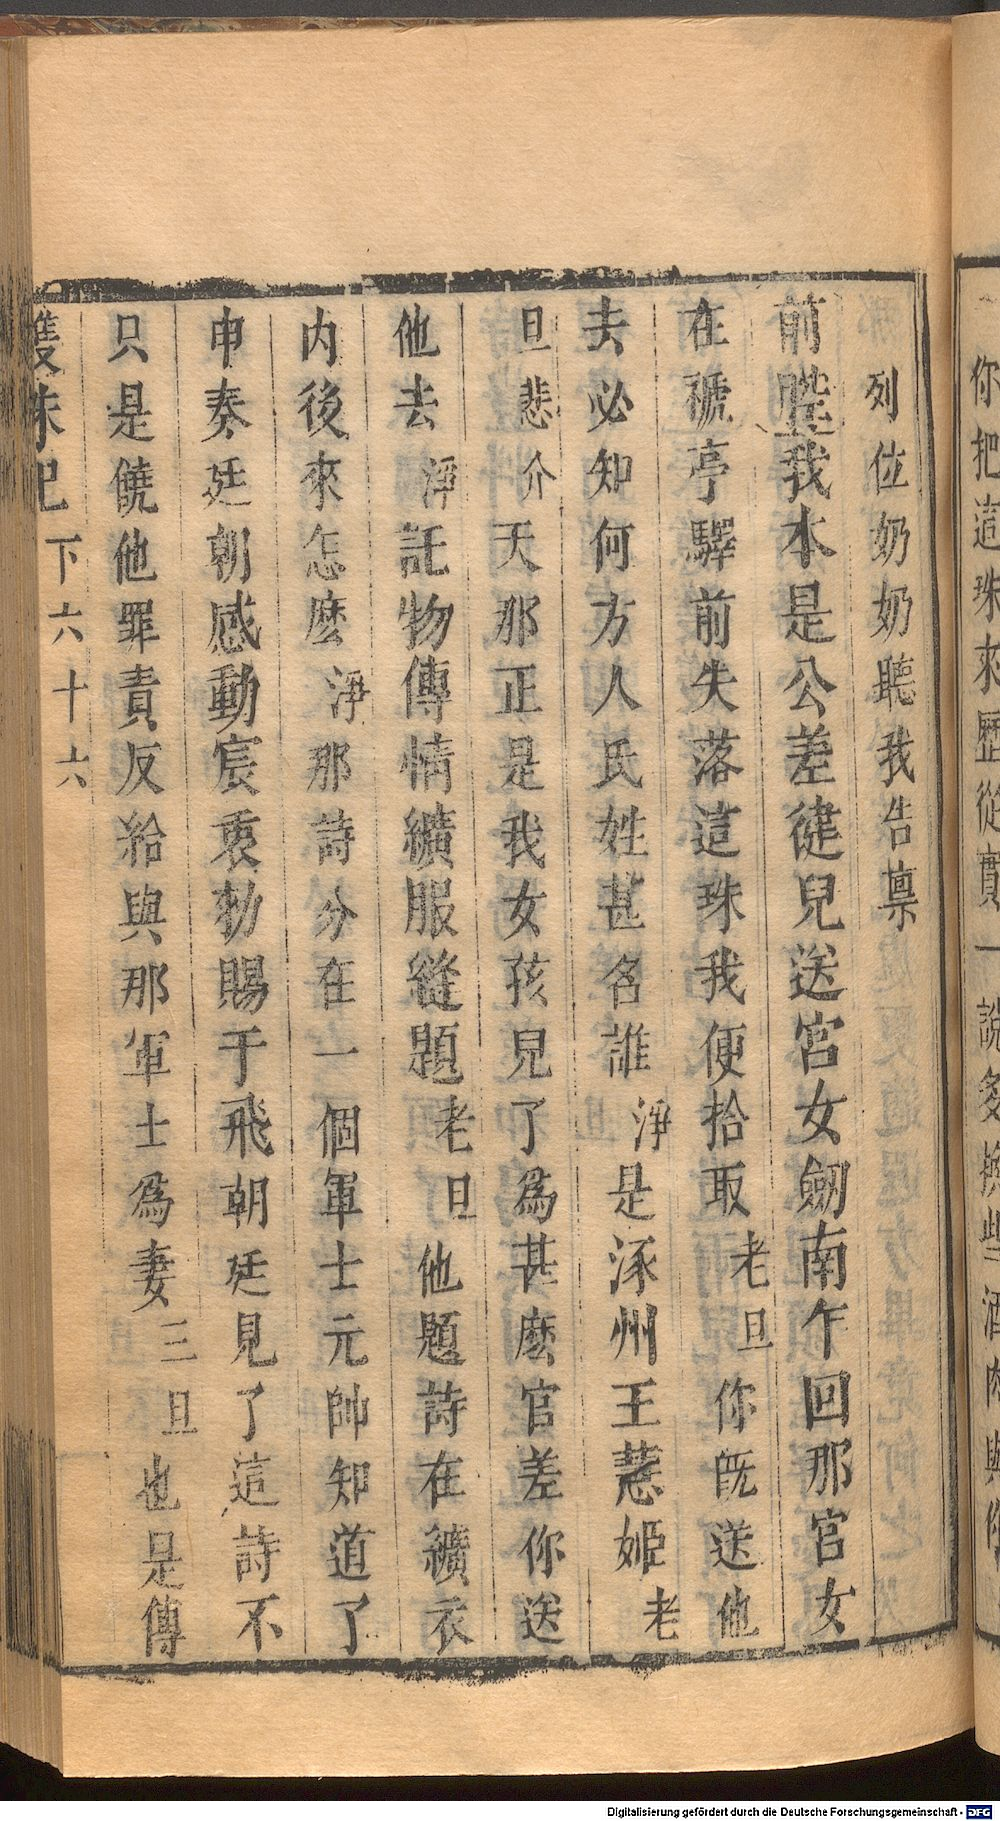 你把這珠來歷從實一說多換些酒肉與你
列位奶奶聽我告禀
前腔我本是公差健兒送宮女劒南乍回那宮女
在褫亭驛前失落這珠我便拾取老旦你旣送他
去必知何方人氏姓甚名誰淨是涿州王慧姬老
旦悲介天那正是我女孩兒了爲甚麽官差你送
他去淨託物傳情纊服縫題老旦他題詩在纊衣
内後來怎麽淨那詩分在一個軍士元帥知道了
申奏廷朝感動宸衷勑賜于飛朝廷見了這詩不
只是饒他罪責反給與那軍士爲妻三旦也是傳
雙珠記 下六十六
Digitalisierung gefördert durch die Deutsche Forschungsgemeinschaft - DFG